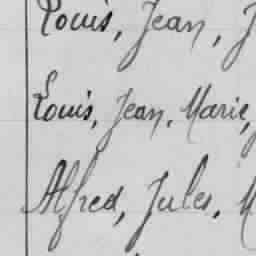 Louis, Jean, J
Louis, Jean, Marie,
Alfred, Jules, M